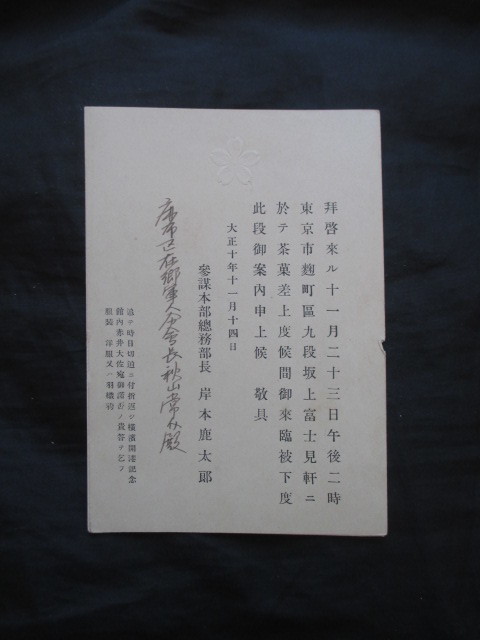 拜啓來ル十一月二十三日午後二時
東京市麴町區九段坂上富士見軒ニ
於テ茶菓差上度候間御來臨被下度
此段御案內申上候 敬具
大正十年十一月十四日
參謀本部總務部長 岸本鹿太郞
麻布区在郷軍人分会長秋山常 殿
追テ時日切迫ニ付折返シ橫濱開港記念
館內赤井大佐宛御諾否ノ貴答ヲ乞フ
服裝 洋服又ハ羽織袴